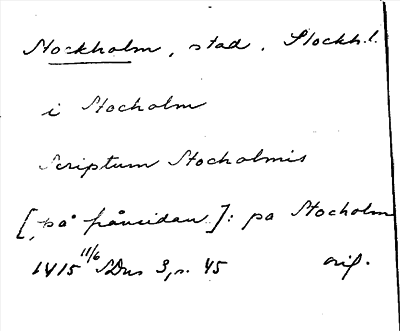 Stockholm, stad. Stockh.l.
i Stocholm
Scriptum Stocholmis
[på frånsidan]: pa Stocholm
1415 11/6 SDns 3, s. 45 orig.